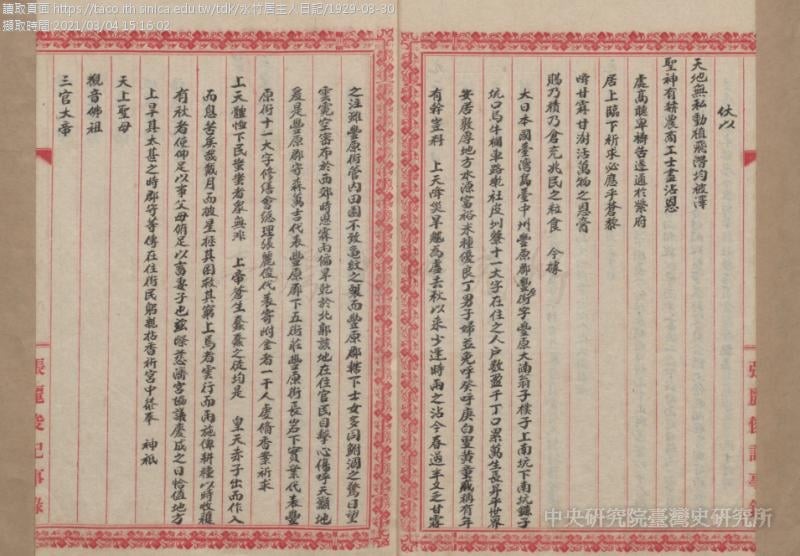 讀取頁面:https://taco.ith.sinica.edu.tw/tdk/水竹居主人日記/1929-03-30
擷取時間:2021/03/04 15:16:02
伏以
天地無私動植飛潛均被澤
聖神有赫農商工士盡沾恩
處高聽卑禱告遂通於紫府
居上臨下祈求必應乎蒼黎
時甘霖甘澍沽萬物之恩膏
賜乃積乃倉充兆民之粒食 今據
大日本國臺灣島臺中州豐原郡豐原街字豐原大湳翁子樸子上南坑下南坑鐮子
坑口烏牛欄車路墘社皮圳藔十一大字在住之人戶數盈千丁口累萬生長昇平世界
安居敦厚地方水源富裕米種優良丁男子婦並免呼癸呼庚白叟黃童咸稱有年
有幹豈料 上天降災旱魃為虐去秋以來少逢時雨之沾今春過半又乏甘霖
之注雖豐原街管內田園不致龜紋之製而豐原郡轄下士女多同鮒涸之驚日望
雲霓空密布於西郊時思霖雨偏旱乾於北郭該地在住官民目擊心傷呼天籲地
爰是豐原郡守森萬吉代表豐原郡下五街庄豐原街長岩下實業代表豐
原街十一大字修繕會總理張麗俊代表寄附金者一千人虔備香案祈求
上天體恤下民樂樂者眾無非 上帝蒼生蠢蠢之徒均是 皇天赤子出而作入
而息苦矣哉戴月而披星拯其困救其窮上焉者雲行而雨施俾耕種以時收穫
有秋者使仰足以事父母俯足以畜妻子也茲際慈濟宮協議慶成之日恰值地方
上旱具太甚之時郡守等傳在住街民躬親拈香祈宮中恭奉 神祇
天上聖母
觀音佛祖
三官大帝
張麗俊記事錄
張麗俊記事錄
中央研究院臺灣史研究所